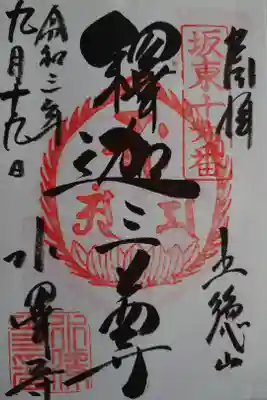 奉拝
坂東十六番
五徳山
釋迦三尊
水澤寺
令和三年
九月十九日